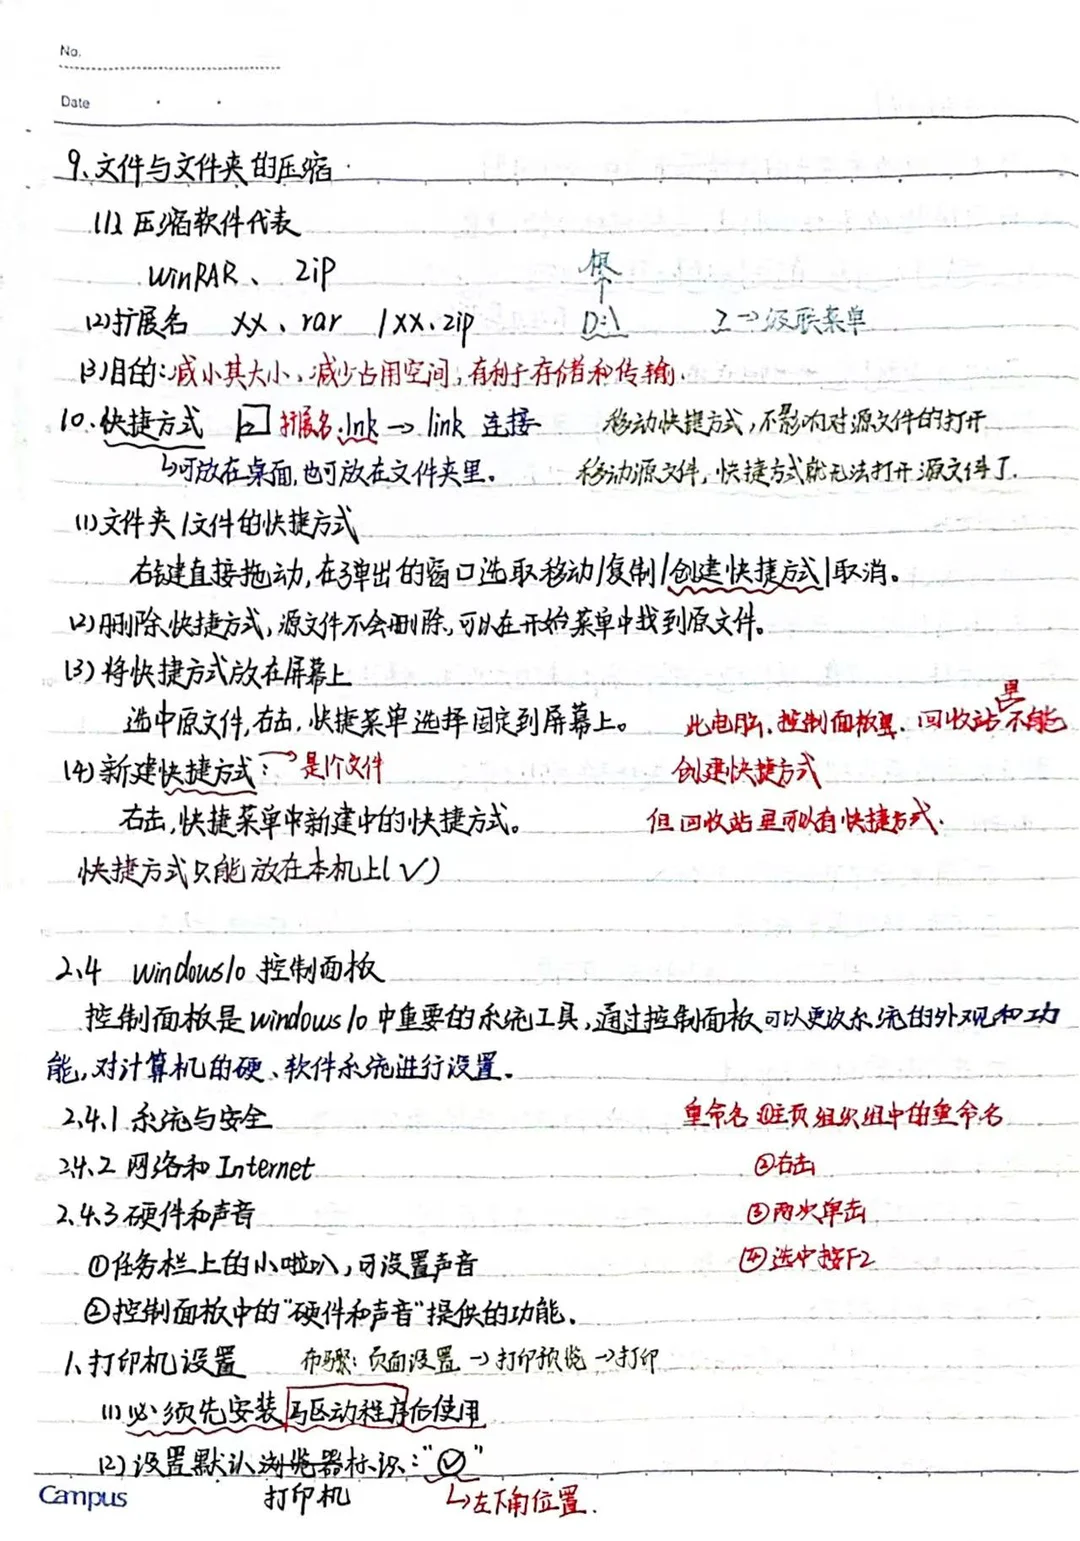 No.
Date
9、文件与文件夹的压缩
(1) 压缩软件代表
winRAR、 zip
根
↑
(2)扩展名 xx、rar /xx.zip D:\ → 级联菜单
(3)目的:减小其大小,减少占用空间,有利于存储和传输.
10.快捷方式 扩展名.lnk → link 连接 移动快捷方式,不影响对源文件的打开
↳可放在桌面,也可放在文件夹里。 移动源文件,快捷方式就无法打开源文件了.
(1)文件夹/文件的快捷方式
右键直接拖动,在弹出的窗口选取移动/复制/创建快捷方式/取消。
(2)删除快捷方式,源文件不会删除,可以在开始菜单中找到原文件。
(3) 将快捷方式放在屏幕上
选中原文件,右击,快捷菜单选择固定到屏幕上。 此电脑、控制面板里、回收站里不能
(4)新建快捷方式: →是个文件 创建快捷方式
右击,快捷菜单中新建中的快捷方式。 但回收站里可以有快捷方式.
快捷方式只能放在本机上(✓)
2.4 windows10 控制面板
控制面板是windows10中重要的系统工具,通过控制面板可以更改系统的外观和功
能,对计算机的硬、软件系统进行设置。
2.4.1 系统与安全 重命名 ①主页组织组中的重命名
2.4.2 网络和Internet ②右击
2.4.3 硬件和声音 ③两次单击
①任务栏上的小喇叭,可设置声音 ④选中按F2
②控制面板中的"硬件和声音"提供的功能.
1.打印机设置 布骤:页面设置→打印预览→打印
(1)必须先安装驱动程序后使用
(2)设置默认浏览器标识:"✓"
打印机 ↳左下角位置.
Campus